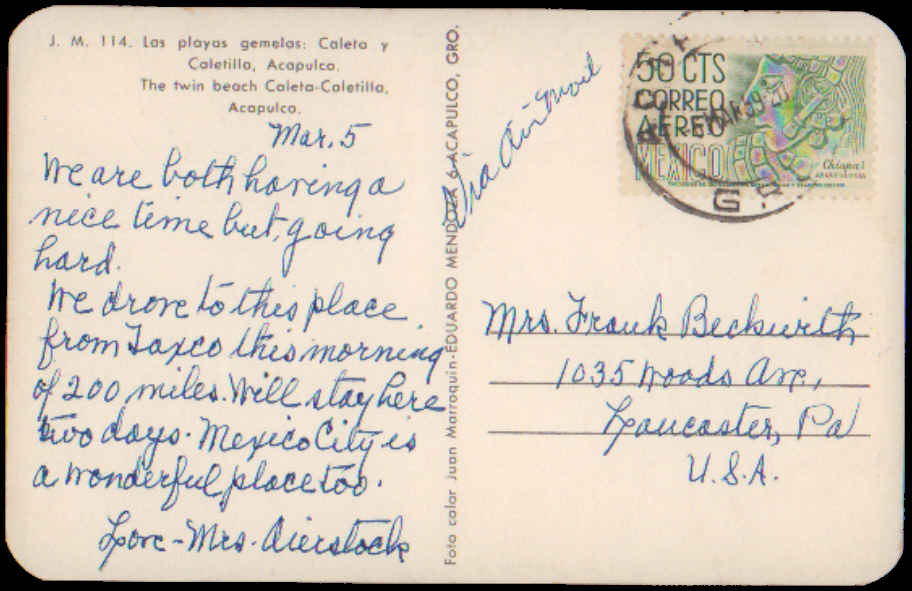 J. M. 114. Las playas gemelas: Caleta y
Caletilla, Acapulco.
The twin beach Caleta-Caletilla,
Acapulco.
Mar. 5
We are both having a
nice time but, going
hard.
We drove to this place
from Taxco this morning
of 200 miles. Will stay here
two days. Mexico City is
a wonderful place too.
Love - Mrs. Aierstock
Foto color Juan Marroquin-EDUARDO MENDOZA 6-ACAPULCO, GRO.
Via Air Mail
50 CTS
CORREO
AEREO
MEXICO
Chiapas
MAR 59
Mrs. Frank Beckwith
1035 Woods Ave,
Lancaster, Pa
U.S.A.